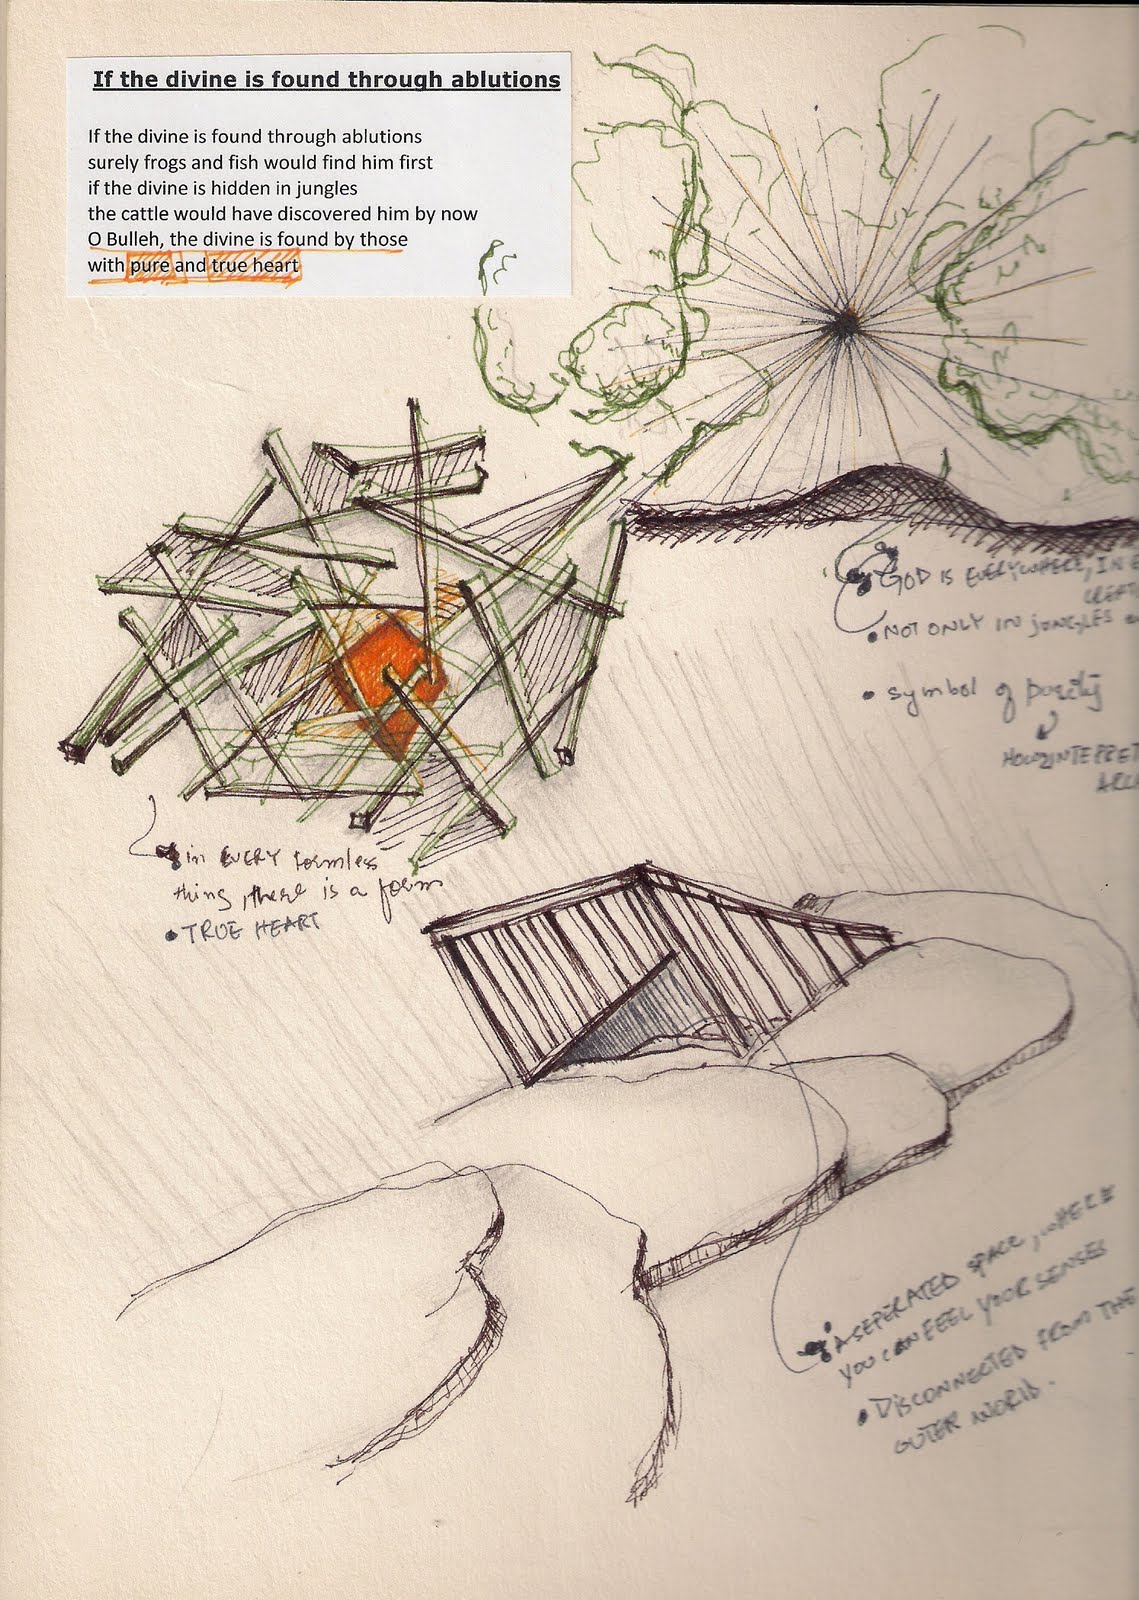 If the divine is found through ablutions
If the divine is found through ablutions
surely frogs and fish would find him first
if the divine is hidden in jungles
the cattle would have discovered him by now
O Bulleh, the divine is found by those
with pure and true heart
GOD IS EVERYWHERE, IN
NOT ONLY IN JUNGLES
symbol of purity
HOW 2 INTERPRET
in EVERY formless
thing, there is a form
TRUE HEART
A SEPERATED SPACE, WHERE
YOU CAN FEEL YOUR SENSES
DISCONNECTED FROM THE
OUTER WORLD.